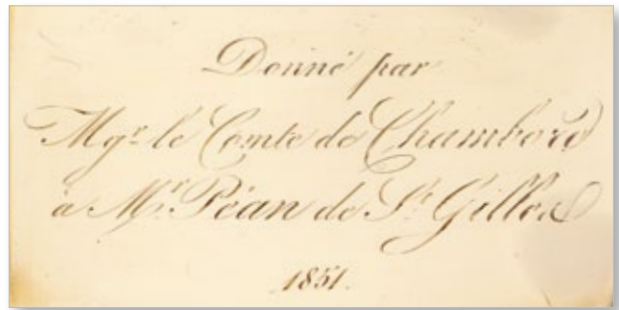 Donné par
Mgr. le Comte de Chambord
à Mr. Péan de St. Gilles
1851.